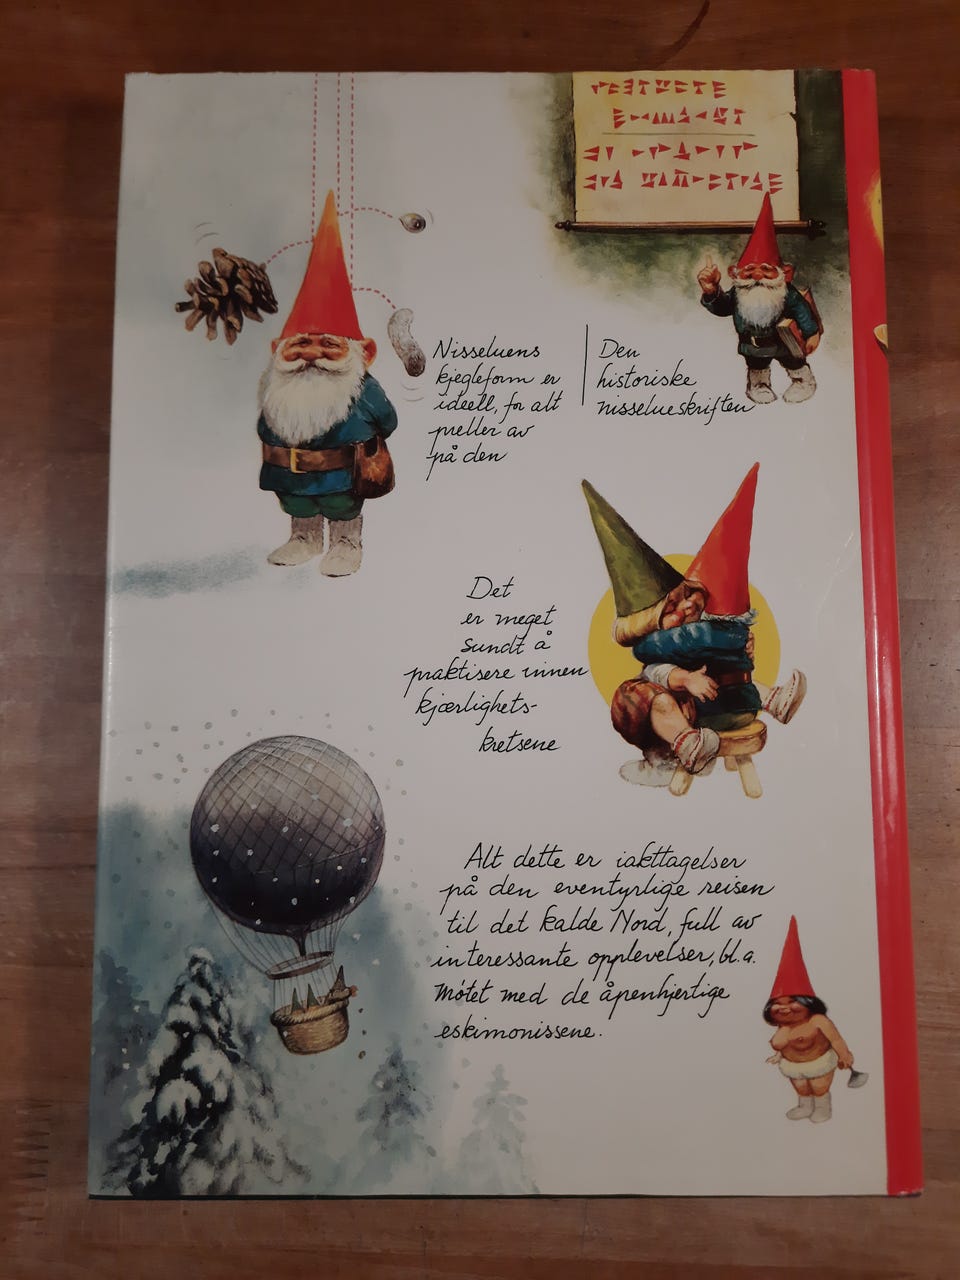 Nisseluens
kjegleform er
ideell, for alt
preller av
på den
Den
historiske
nisselueskriften
Det
er meget
sundt å
praktisere innen
kjærlighets-
kretsene
Alt dette er iakttagelser
på den eventyrlige reisen
til det kalde Nord, full av
interessante opplevelser, bl.a.
møtet med de åpenhjertige
eskimonissene.